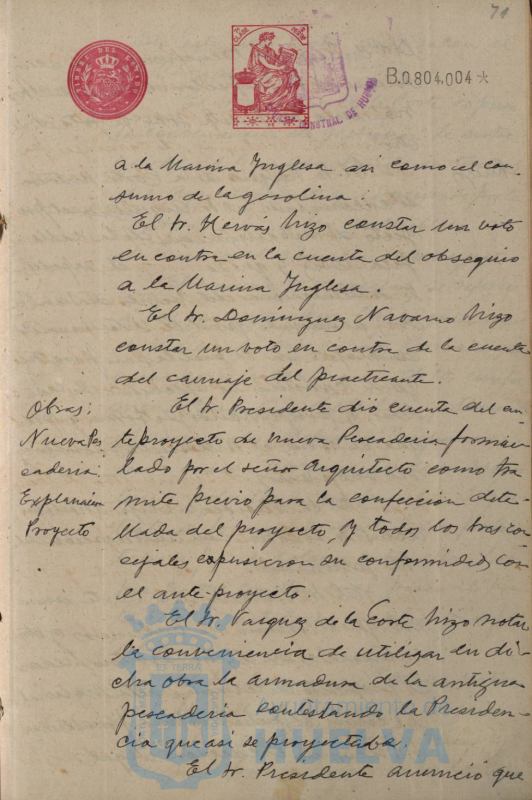 71
TIMBRE DEL ESTADO
B.0.804.004*
a la Marina Inglesa asi como el con-
sumo de la gasolina.
El Sr. Hervás hizo constar un voto
en contra en la cuenta del obsequio
a la Marina Inglesa.
El Sr. Dominguez Navarro hizo
constar un voto en contra de la cuenta
del carruaje del practicante.
Obras:
Nueva Pes
caderia:
Explanacion
Proyecto
El Sr. Presidente dió cuenta del an
teproyecto de nueva Pescaderia formu
lado por el señor Arquitecto como tra
mite previo para la confeccion deta-
llada del proyecto, y todos los tres con
cejales expusieron su conformidad con
el ante-proyecto.
El Sr. Vazquez de la Corte hizo notar
la conveniencia de utilizar en di-
cha obra la armadura de la antigua
pescaderia contestando la Presiden-
cia que asi se proyectaba.
El Sr. Presidente anunció que
HUELVA